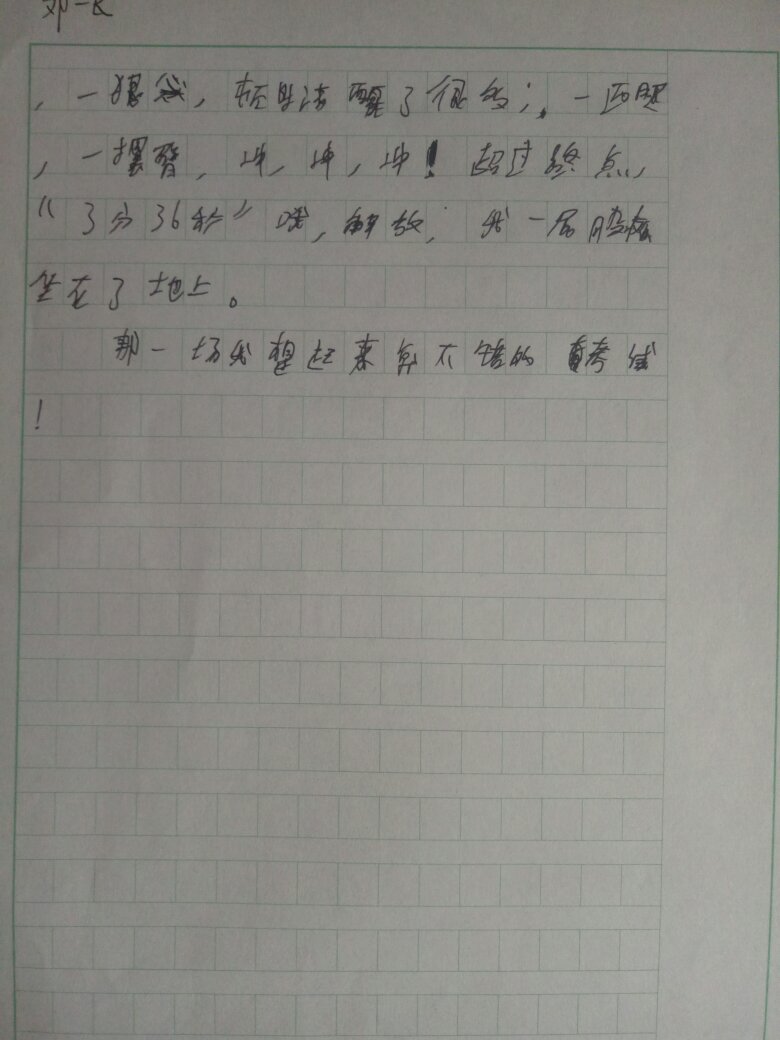 ，一狠心，顿时清醒了很多；，一迈腿
，一摆臂，冲，冲，冲！超过终点，
“3分36秒”哦，解放，我一屁股
坐在了地上。
那一场我想起来算不错的考试
！